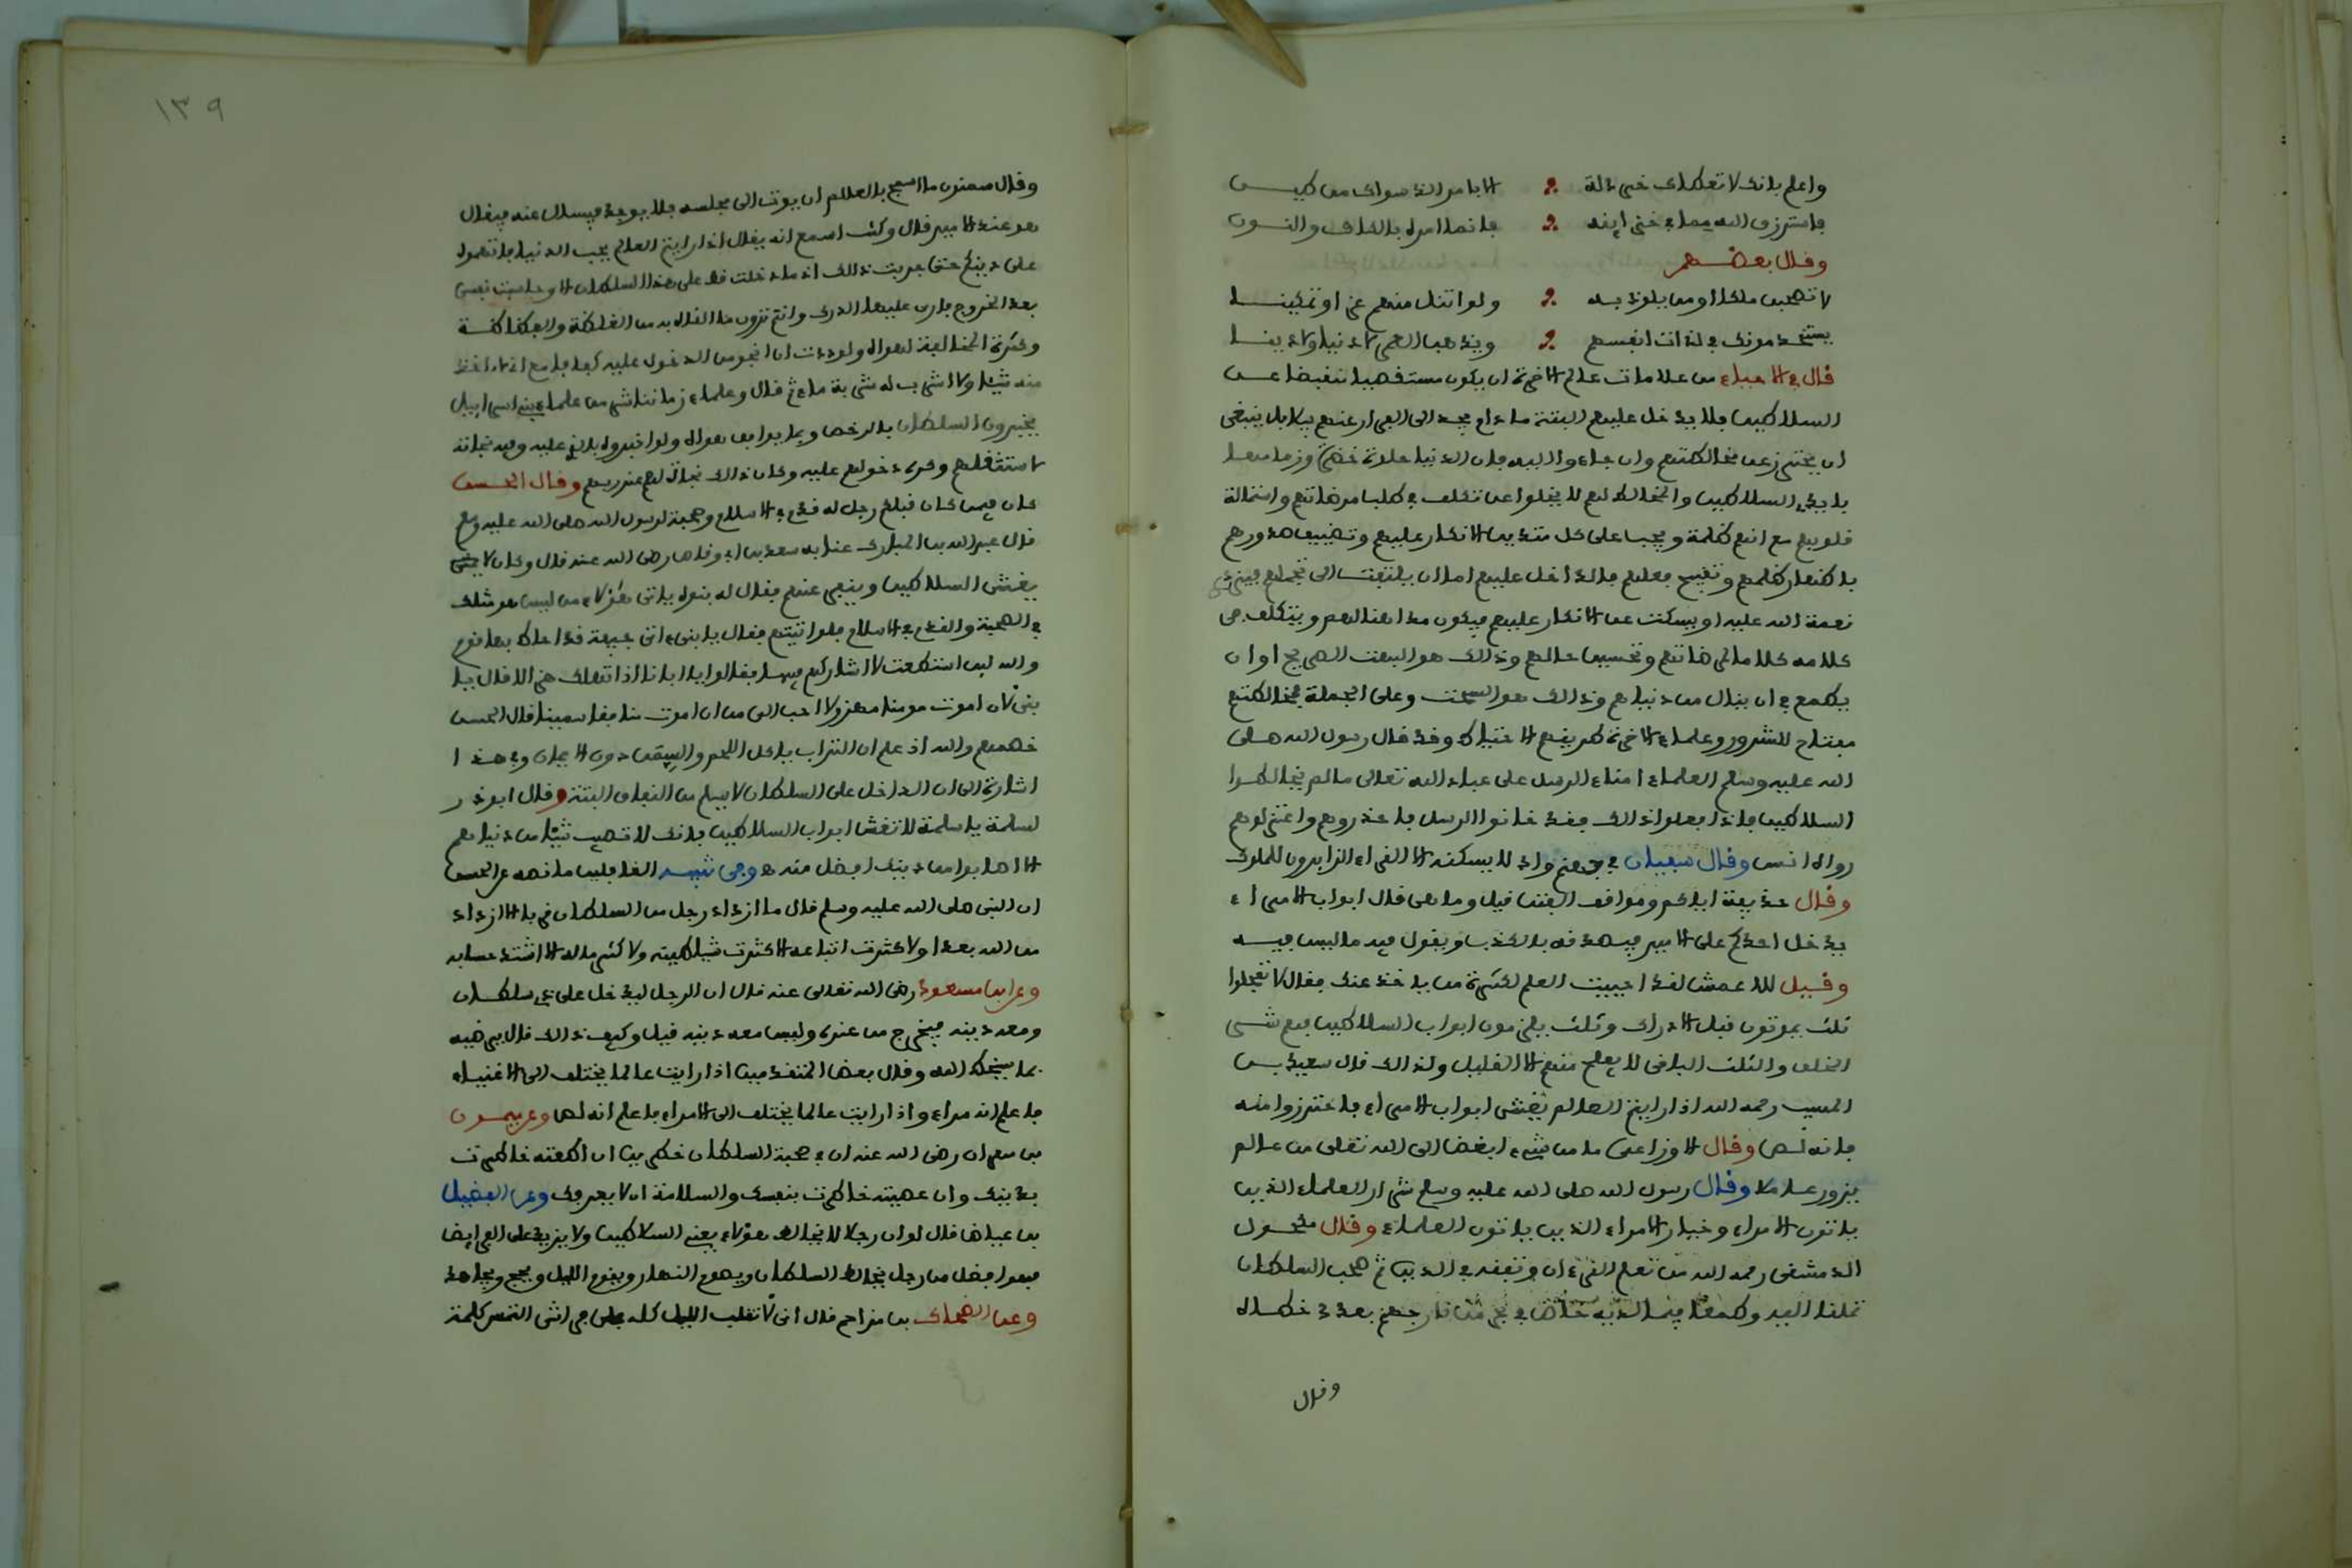 واعلم بانك لا تعطاك خردلة الا بامر الذ سواك من طيـــن
فاسترزق الله مما في خزاينه فانما امره بالكاف والنـــون
وقال بعضـهم
لا تصحبن ملكا او من يلوذ بـه ولو اتنل منهم عزا وتمكينـــا
يستخدمونك في لذات انفسهم ويذهب العمر لا دنيا ولا دينـــا
قال في الاحياء من علامات عالم الاخرة ان يكون مستقصيا منقبضا عـــن
السلاطين فلا يدخل عليهم البتة ما دام يجد الى الفرار عنهم سبيلا بل ينبغي
ان يحترز عن مخالطتهم وان جاءوا اليه فان الدنيا حلوة خضرة وزمامهـا
بايدي السلاطين والمخالط لهم لا يخلوا عن تكلف في طلب مرضاتهم واستمالة
قلوبهم مع انهم ظلمة ويجب على كل متدين الانكار عليهم وتضييق صدورهم
باظهار ظلمهم وتقبيح فعلهم فالداخل عليهم اما ان يلتفت الى تجملهم فيزدري
نعمة الله عليه او يسكت عن الانكار عليهم فيكون مداهنا لهم ويتكلف في
كلامه كلاما لمرضاتهم وتحسين حالهم وذالك هو البهت الصريح او ان
يطمع في ان ينال من دنياهم وذالك هو السحت وعلى الجملة فمخالطتهم
مفتاح للشرور وعلماء الاخرة طريقهم الاحتياط وقد قال رسول الله صـلى
الله عليه وسلم العلماء امناء الرسل على عباد الله تعالى ما لم يخالطـوا
السلاطين فاذا فعلوا ذالك فقد خانوا الرسل فاحذروهم واعتزلوهم
رواه انس وقال سفيان في جهنم واد لا يسكنه الا القراء الزايرون للملوك
وقال حذيفة اياكم ومواقف الفتن قيل وما هي قال ابواب الامراء
يدخل احدكم على الامير فيصدقه بالكذب ويقول فيه ما ليس فيـه
وقيـل للاعمش لقد احييت العلم لكثرة من ياخذ عنك فقال لا تعجلوا
ثلث يموتون قبل الادراك وثلث يلزمون ابواب السلاطين فهم شـر
الخلق والثلث الباقي لا يفلح منهم الا القليل ولذالك قال سعيد بـن
المسيب رحمه الله اذا رايتم العالم يغشى ابواب الامراء فاحترزوا منه
فانه لـص وقال الاوزاعي ما من شيء ابغض الى الله تعلى من عالم
يزور عاملا وقال رسول الله صلى الله عليه وسلم شرار العلماء الذين
ياتون الامراء وخيار الامراء الذين ياتون العلماء وقال مكحـول
الدمشقي رحمه الله من تعلم القرءان وتفقه في الدين ثم صحب السلطان
تملقا اليه وطمعا فيما لديه خاض في بحر من نار جهنم بعدد خطـاه
وقال
وقال سحنون ما اسمج بالعالم ان يوتى الى مجلسه فلا يوجد فيسال عنه فيقال
هو عند الامير قال وكنت اسمع انه يقال اذا رايتم العالم يحب الدنيا فاتهموه
على دينكم حتى جربت ذالك اذ ما دخلت قط على هذا السلطان الا وحاسبت نفسي
بعد الخروج فارى عليها الدرك وانتم ترون ما القاه به من الغلظة والفظاظـة
وكثرة المخالفة لهواه ولوددت ان انجو من الدخول عليه كفافا مع اني لا اخذ
منه شيئا ولا اشرب له شربة ماء ثم قال وعلماء زماننا شر من علماء بني اسراييل
يخبرون السلطان بالرخص وبما يوافق هواه ولو اخبروه بالذي عليه وفيه نجاته
لاستثقلهم وكره دخولهم عليه وكان ذالك نجاة لهم عند ربهم وقال الحسـن
كان فيمن كان قبلكم رجل له قدم في الاسلام وصحبة لرسول الله صلى الله عليه وسلم
قال عبد الله بن المبارك عنا به سعد بن ابي وقاص رضي الله عنه قال وكان لا
يغشى السلاطين وينفر عنهم فقال له بنوه ياتي هؤلاء من ليس هو مثلك
في الصحبة والقدم في الاسلام فلو اتيتهم فقال يا بني اتي جيفة قد احاط بها قوم
والله لين استطعت لا اشاركهم فيهـا فقالوا يا ابانا اذا تهلك هزالا قال يا
بني لان اموت مومنا مهزولا احب الي من ان اموت منافقا سمينا قال الحسن
خصمهم والله اذ علم ان التراب ياكل اللحم والسمن دون الايمان وفي هـذا
اشارة الى ان الداخل على السلطان لا يسلم من النفاق البتة وقال ابو ذر
لسلمة يا سلمة لا تغش ابواب السلاطين فانك لا تصيب شيئا من دنياهم
الا اصابوا من دينك افضل منه وفي تنبيـه الغافلين ما نصه عن الحسن
ان النبي صلى الله عليه وسلم قال ما ازداد رجل من السلطان قربا الا ازداد
من الله بعدا ولا كثرت اتباعه الا كثرت شياطينه ولا كثر ماله الا اشتد حسابه
وعن ابن مسعود رضي الله تعالى عنه قال ان الرجل ليدخل على ذي سلطـان
ومعه دينه فيخرج من عنده وليس معه دينه قيل وكيف ذالك قال يرضيه
بما يسخط الله وقال بعض المتقدمين اذا رايت عالما يختلف الى الاغنياء
فاعلم انه مراء واذا رايت عالما يختلف الى الامراء فاعلم انه لص وعن ميمـون
بن مهران رضي الله عنه ان في صحبة السلطان خطرين ان اطعته خاطرت
بدينك وان عصيته خاطرت بنفسك والسلامة ان لا يعرفك وعن الفضيل
بن عياض قال لو ان رجلا لا يخالط هؤلاء يعني السلاطين ولا يزيد على الفرايض
فهو افضل من رجل يخالط السلطان ويصوم النهار ويقوم الليل ويحج ويجاهد
وعن الضحاك بن مزاحم قال اني لاتقلب الليل كله على فراشي التمس كلمة
١٣٩